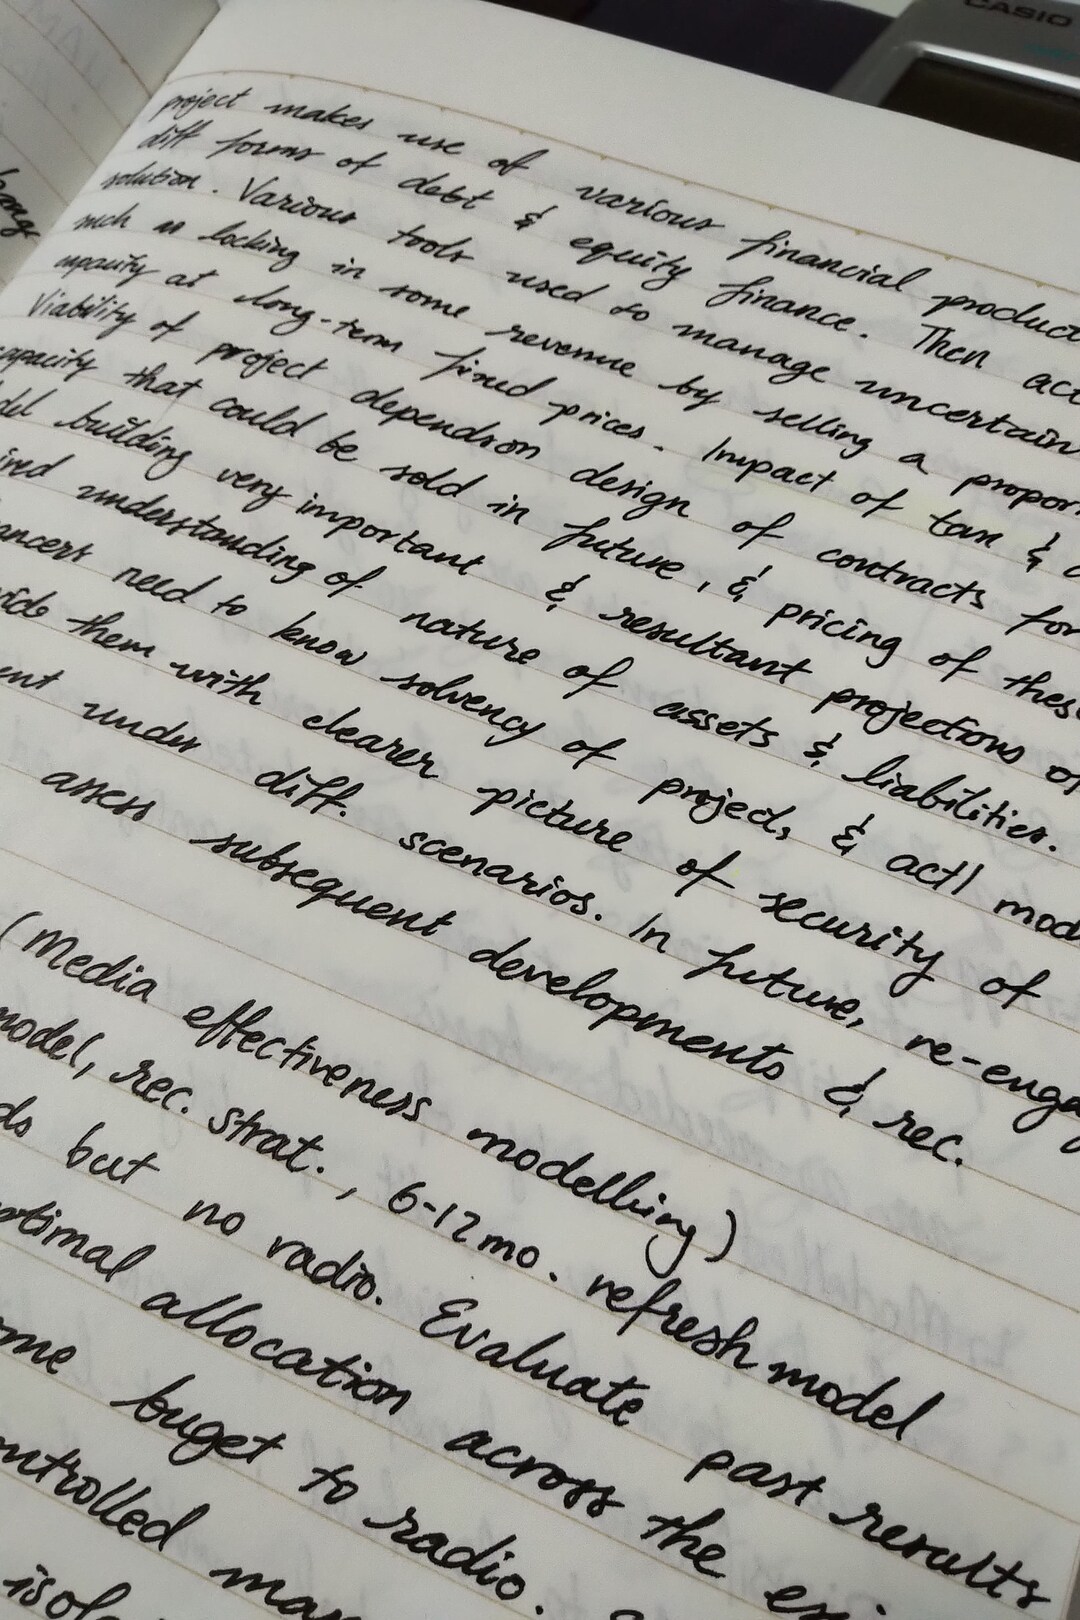 CASIO
project makes use of various financial product
diff forms of debt & equity finance. Then act
solution. Various tools used to manage uncertain
such as locking in some revenue by selling a propor
capacity at long-term fixed prices. Impact of tax &
Viability of project dependson design of contracts for
capacity that could be sold in future, & pricing of these
del building very important & resultant projections of
ired understanding of nature of assets & liabilities.
ancers need to know solvency of project, & actl mod
vide them with clearer picture of security of
ent under diff. scenarios. In future, re-enga
assess subsequent developments & rec.
(Media effectiveness modelling)
model, rec. strat., 6-12mo. refresh model
ds but no radio. Evaluate past results
optimal allocation across the
ome buget to radio.
ontrolled
isol